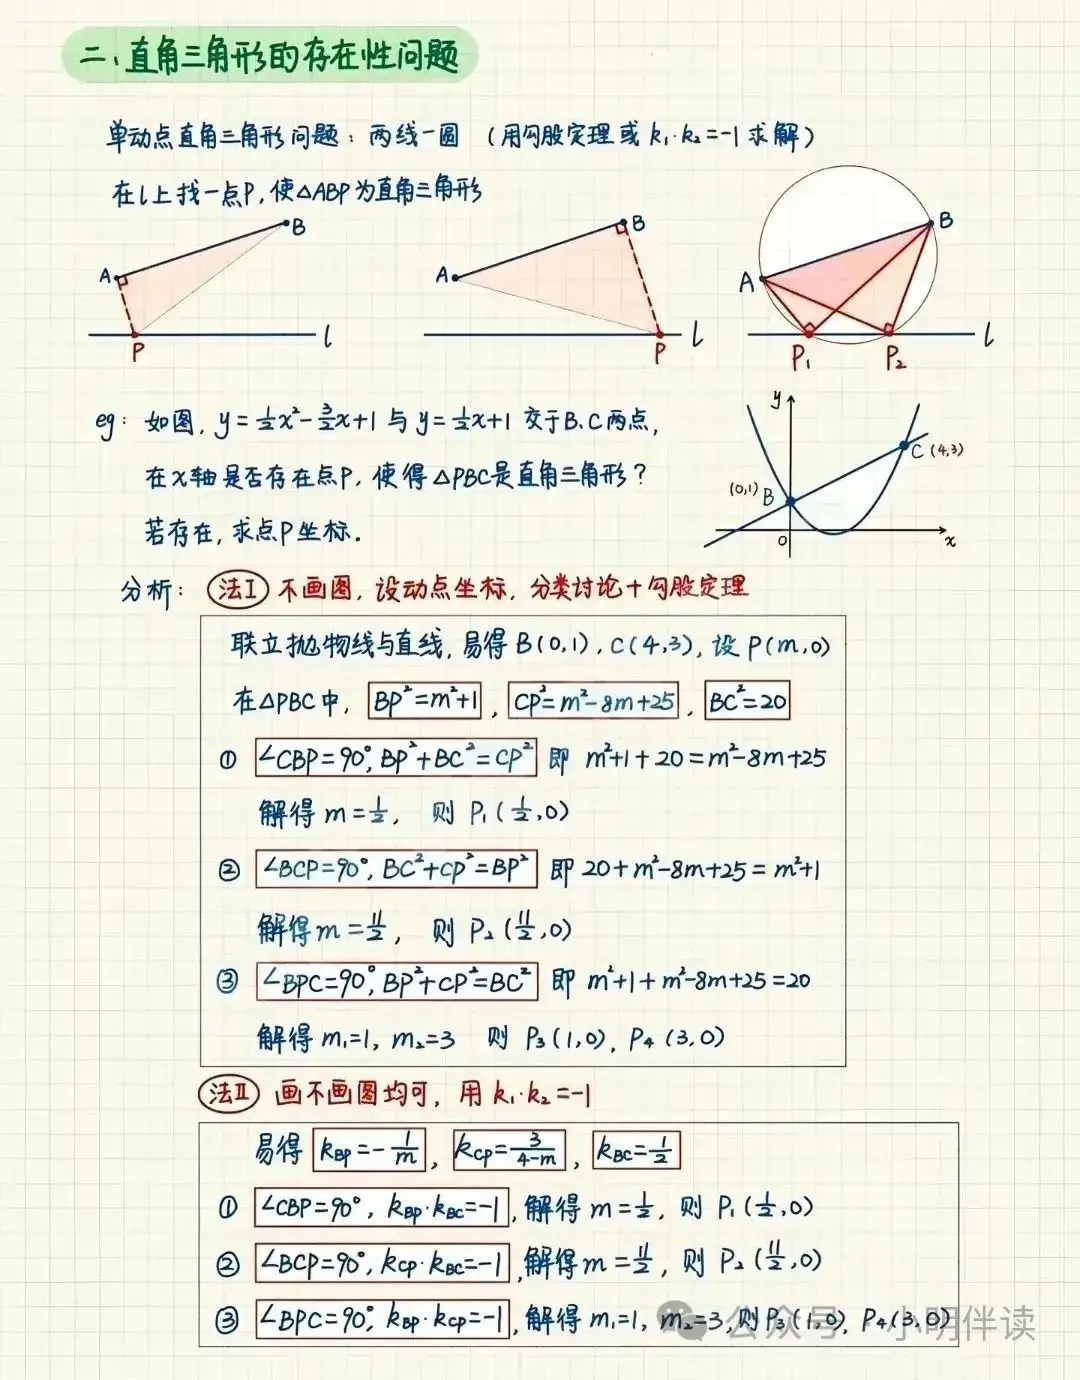 二、直角三角形的存在性问题
单动点直角三角形问题：两线一圆 （用勾股定理或 k₁·k₂=-1 求解）
在l上找一点P，使△ABP为直角三角形
A B P l
A B P l
A B P₁ P₂ l
eg：如图，y=½x²-3/2x+1 与 y=½x+1 交于B、C两点，
在x轴是否存在点P，使得△PBC是直角三角形？
若存在，求点P坐标．
y
C (4,3)
(0,1) B
O x
分析： 法Ⅰ 不画图，设动点坐标，分类讨论+勾股定理
联立抛物线与直线，易得 B(0,1)，C(4,3)，设 P(m,0)
在△PBC中， BP²=m²+1 ， CP²=m²-8m+25 ， BC²=20
① ∠CBP=90°, BP²+BC²=CP² 即 m²+1+20=m²-8m+25
解得 m=½， 则 P₁(½,0)
② ∠BCP=90°, BC²+CP²=BP² 即 20+m²-8m+25=m²+1
解得 m=11/2， 则 P₂(11/2,0)
③ ∠BPC=90°, BP²+CP²=BC² 即 m²+1+m²-8m+25=20
解得 m₁=1, m₂=3 则 P₃(1,0), P₄(3,0)
法Ⅱ 画不画图均可，用 k₁·k₂=-1
易得 k_BP=-1/m ， k_CP=3/(4-m) ， k_BC=½
① ∠CBP=90°, k_BP·k_BC=-1 , 解得 m=½, 则 P₁(½,0)
② ∠BCP=90°, k_CP·k_BC=-1 , 解得 m=11/2, 则 P₂(11/2,0)
③ ∠BPC=90°, k_BP·k_CP=-1 , 解得 m₁=1, m₂=3, 则 P₃(1,0), P₄(3,0)
公众号·小明伴读